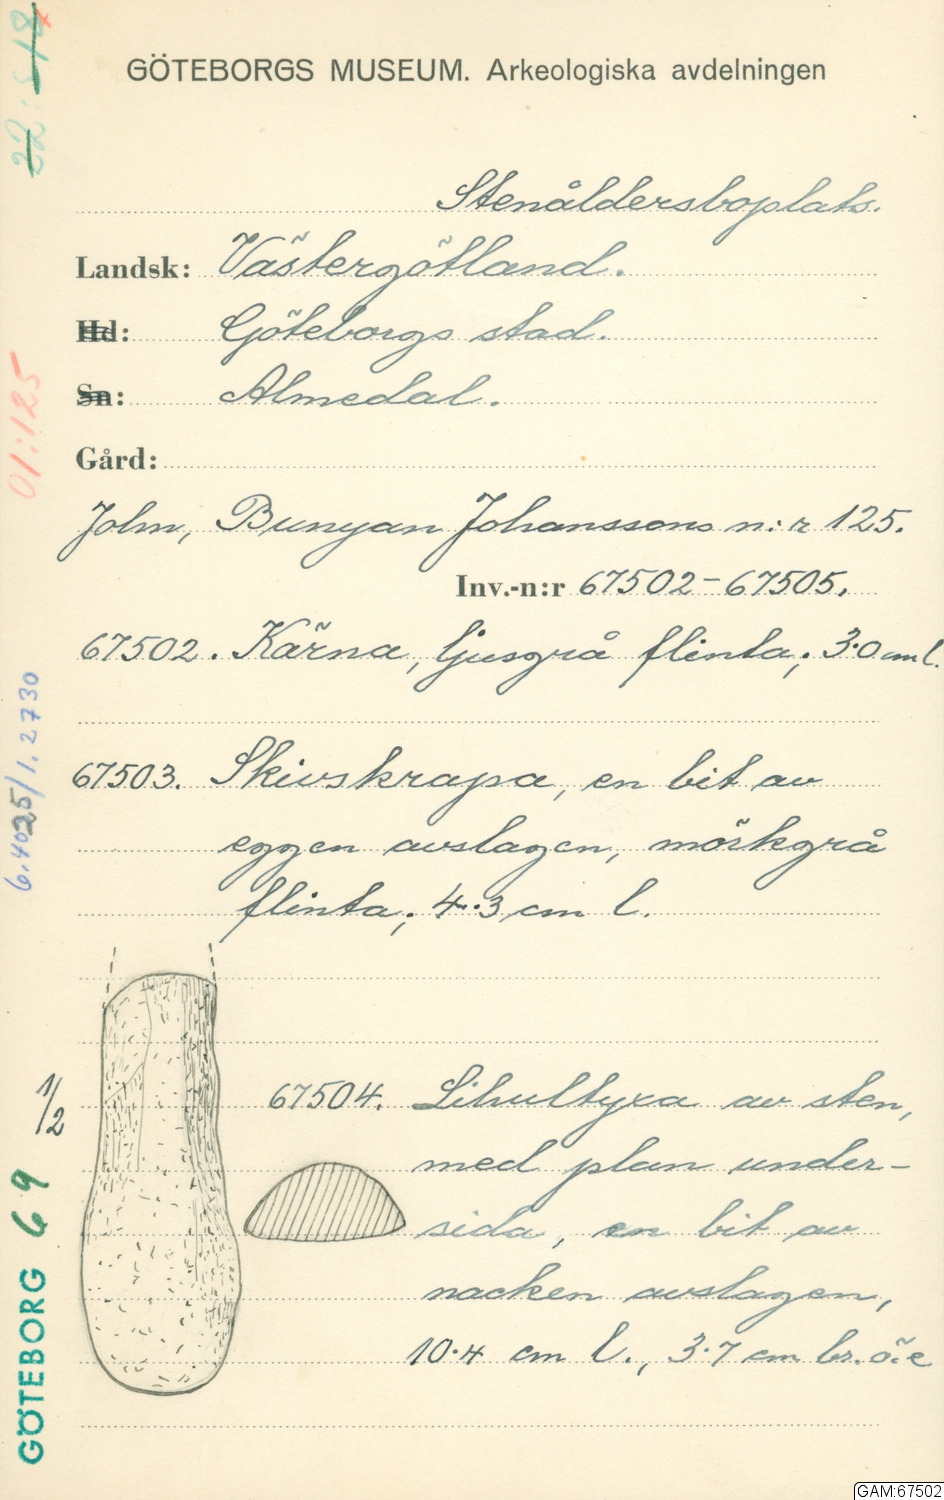 GÖTEBORGS MUSEUM. Arkeologiska avdelningen
Stenåldersboplats.
Landsk: Västergötland.
Hd: Göteborgs stad.
Sn: Almedal.
Gård:
John, Bunyan Johanssons n:r 125.
Inv.-n:r 67502-67505.
67502. Kärna, ljusgrå flinta; 3.0 cm l.
67503. Skivskrapa, en bit av
eggen avslagen, mörkgrå
flinta; 4.3 cm l.
1/2
67504. Lihultyxa av sten,
med plan under-
sida, en bit av
nacken avslagen,
10.4 cm l., 3.7 cm br. ö. e
01:125
6.4025/1.2730
GÖTEBORG 69
GAM:67502